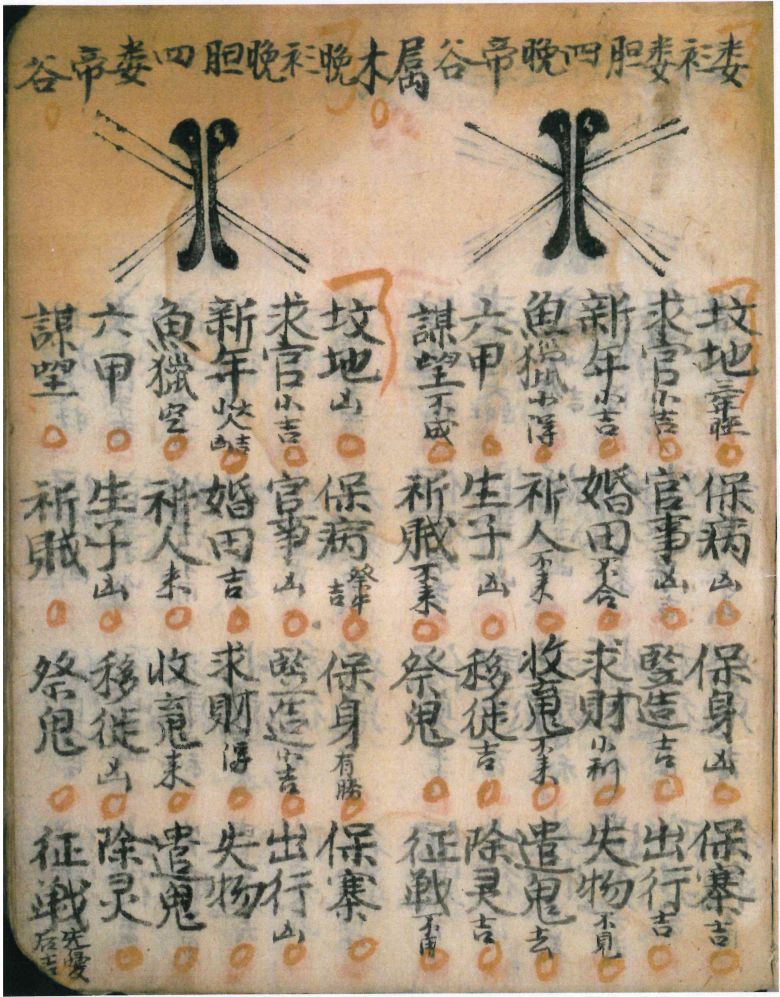 娄衫娄胆四晚帝谷
属木晚衫晚胆四娄帝谷
坟地 保病凶 保身凶 保寨吉
求官小吉 官事凶 竪造吉 出行吉
新年小吉 婚田不合 求財小利 失物不見
魚獵小得 祈人不来 收䰟不来 遣鬼去
六甲 生子凶 移徙吉 除灵吉
謀望不成 祈賊不来 祭鬼 征戰不用
坟地凶 保病祭牛吉 保身有勝 保寨
求官小吉 官事凶 竪造小吉 出行凶
新年 婚田吉 求財得 失物
魚獵空 祈人来 收䰟来 遣鬼
六甲 生子凶 移徙凶 除灵
謀望 祈賊 祭鬼 征戰先憂后吉